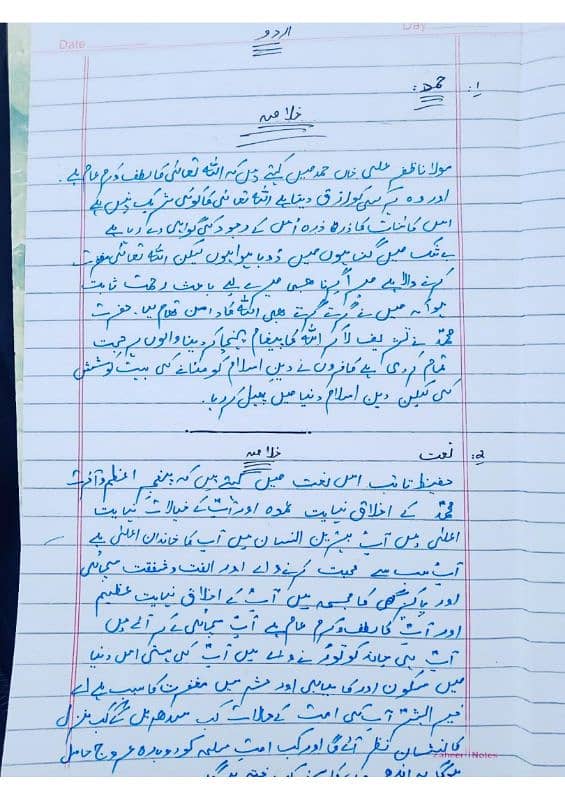 Date
Day
اردو
۱: حمد:
خلاصہ
مولانا ظفر علی خاں حمد میں کہتے ہیں کہ اللہ تعالیٰ کا لطف و کرم عام ہے۔
اور وہ ہر کسی کو رزق دیتا ہے اللہ تعالیٰ کا کوئی شریک نہیں ہے
اس کائنات کا ذرہ ذرہ اس کے وجود کی گواہی دے رہا ہے
بے شک میں گناہوں میں ڈوبا ہوا ہوں لیکن اللہ تعالیٰ مغفرت
کرنے والا ہے میرا گرنا بھی میرے لیے باعث رحمت ثابت
ہوا کہ میں نے گرتے گرتے بھی اللہ کا دامن تھام لیا۔ حضرت
محمدؐ نے تشریف لا کر اللہ کا پیغام پہنچا کر دنیا والوں پر حجت
تمام کر دی ہے کافروں نے دین اسلام کو مٹانے کی بہت کوشش
کی لیکن دین اسلام دنیا میں پھیل کر رہا۔
۲: نعت
خلاصہ
حفیظ تائب اس نعت میں کہتے ہیں کہ پیغمبر اعظم و آخرت
محمدؐ کے اخلاق نہایت عمدہ اور آپؐ کے خیالات نہایت
اعلیٰ ہیں آپؐ بہترین انسان ہیں آپ کا خاندان اعلیٰ ہے
آپؐ سب سے محبت کرنے والے اور الفت و شفقت سچائی
اور پاکیزگی کا مجسمہ ہیں آپؐ کے اخلاق نہایت عظیم
اور آپؐ کا لطف و کرم عام ہے آپؐ سچائی کے آلے ہیں
آپؐ ہی چاند کو توڑنے والے ہیں آپؐ کی ہستی اس دنیا
میں سکون اور کامیابی اور حشر میں مغفرت کا سبب ہے اے
خیر البشرؐ آپؐ کی امت کے حالات کب سدھر یں گے کب منزل
کا نشان نظر آئے گا اور کب امت مسلمہ کو دوبارہ عروج حاصل
ہو گا یہ
Zaheer Notes